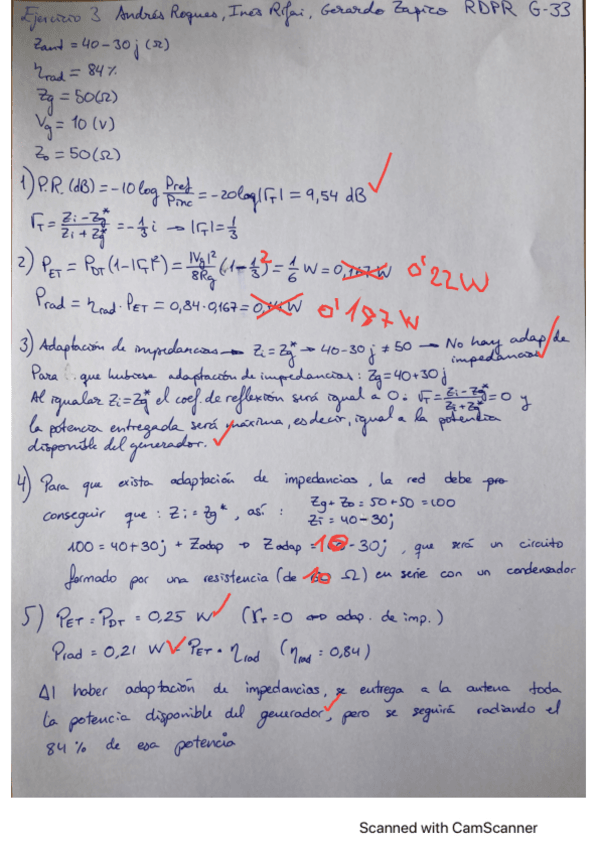 Ejercicio 3 Andrés Roques, Inés Rifai, Gerardo Zapico RDPR G-33
Zant = 40-30j (Ω)
ηrad = 84%
Zg = 50(Ω)
Vg = 10 (v)
Z0 = 50(Ω)
1) P.R. (dB) = -10log Pref/Pinc = -20log|ΓT| = 9,54 dB ✓
ΓT = (Zi-Zg*)/(Zi+Zg*) = -1/3 i → |ΓT| = 1/3
2) PET = PDT (1-|ΓT|²) = |Vg|²/8Rg (1-1/3)² = 1/6 W = 0,167 W 0'22W
Prad = ηrad · PET = 0,84·0,167 = W 0'187 W
3) Adaptación de impedancias → Zi = Zg* → 40-30j ≠ 50 → No hay adap de impedancias ✓
Para que hubiese adaptación de impedancias: Zg = 40+30j
Al igualar Zi = Zg* el coef. de reflexión será igual a 0: ΓT = (Zi-Zg*)/(Zi+Zg*) = 0 y
la potencia entregada será máxima, es decir, igual a la potencia
disponible del generador. ✓
4) Para que exista adaptación de impedancias, la red debe pro
conseguir que: Zi = Zg*, así: Zg+Z0 = 50+50 = 100
Zi = 40-30j
100 = 40+30j + Zadap → Zadap = 10-30j, que será un circuito
formado por una resistencia (de 10 Ω) en serie con un condensador
5) PET = PDT = 0,25 W ✓ (ΓT = 0 ↔ adap. de imp.)
Prad = 0,21 W ✓ = PET · ηrad (ηrad = 0,84)
Al haber adaptación de impedancias, se entrega a la antena toda
la potencia disponible del generador ✓, pero se seguirá radiando el
84% de esa potencia
Scanned with CamScanner